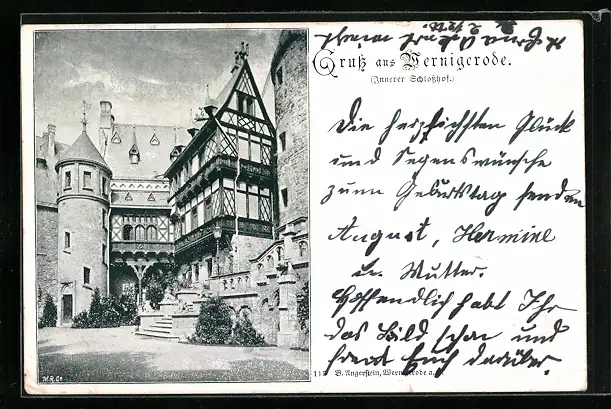 Gruß aus Wernigerode.
(Innerer Schloßhof.)
Die herzlichsten Glück
und Segenswünsche
zum Geburtstag senden
August, Hermine
u. Mutter.
Hoffendlich habt Ihr
das Bild schon und
freut Euch darüber.
B. Angerstein, Wernigerode a.